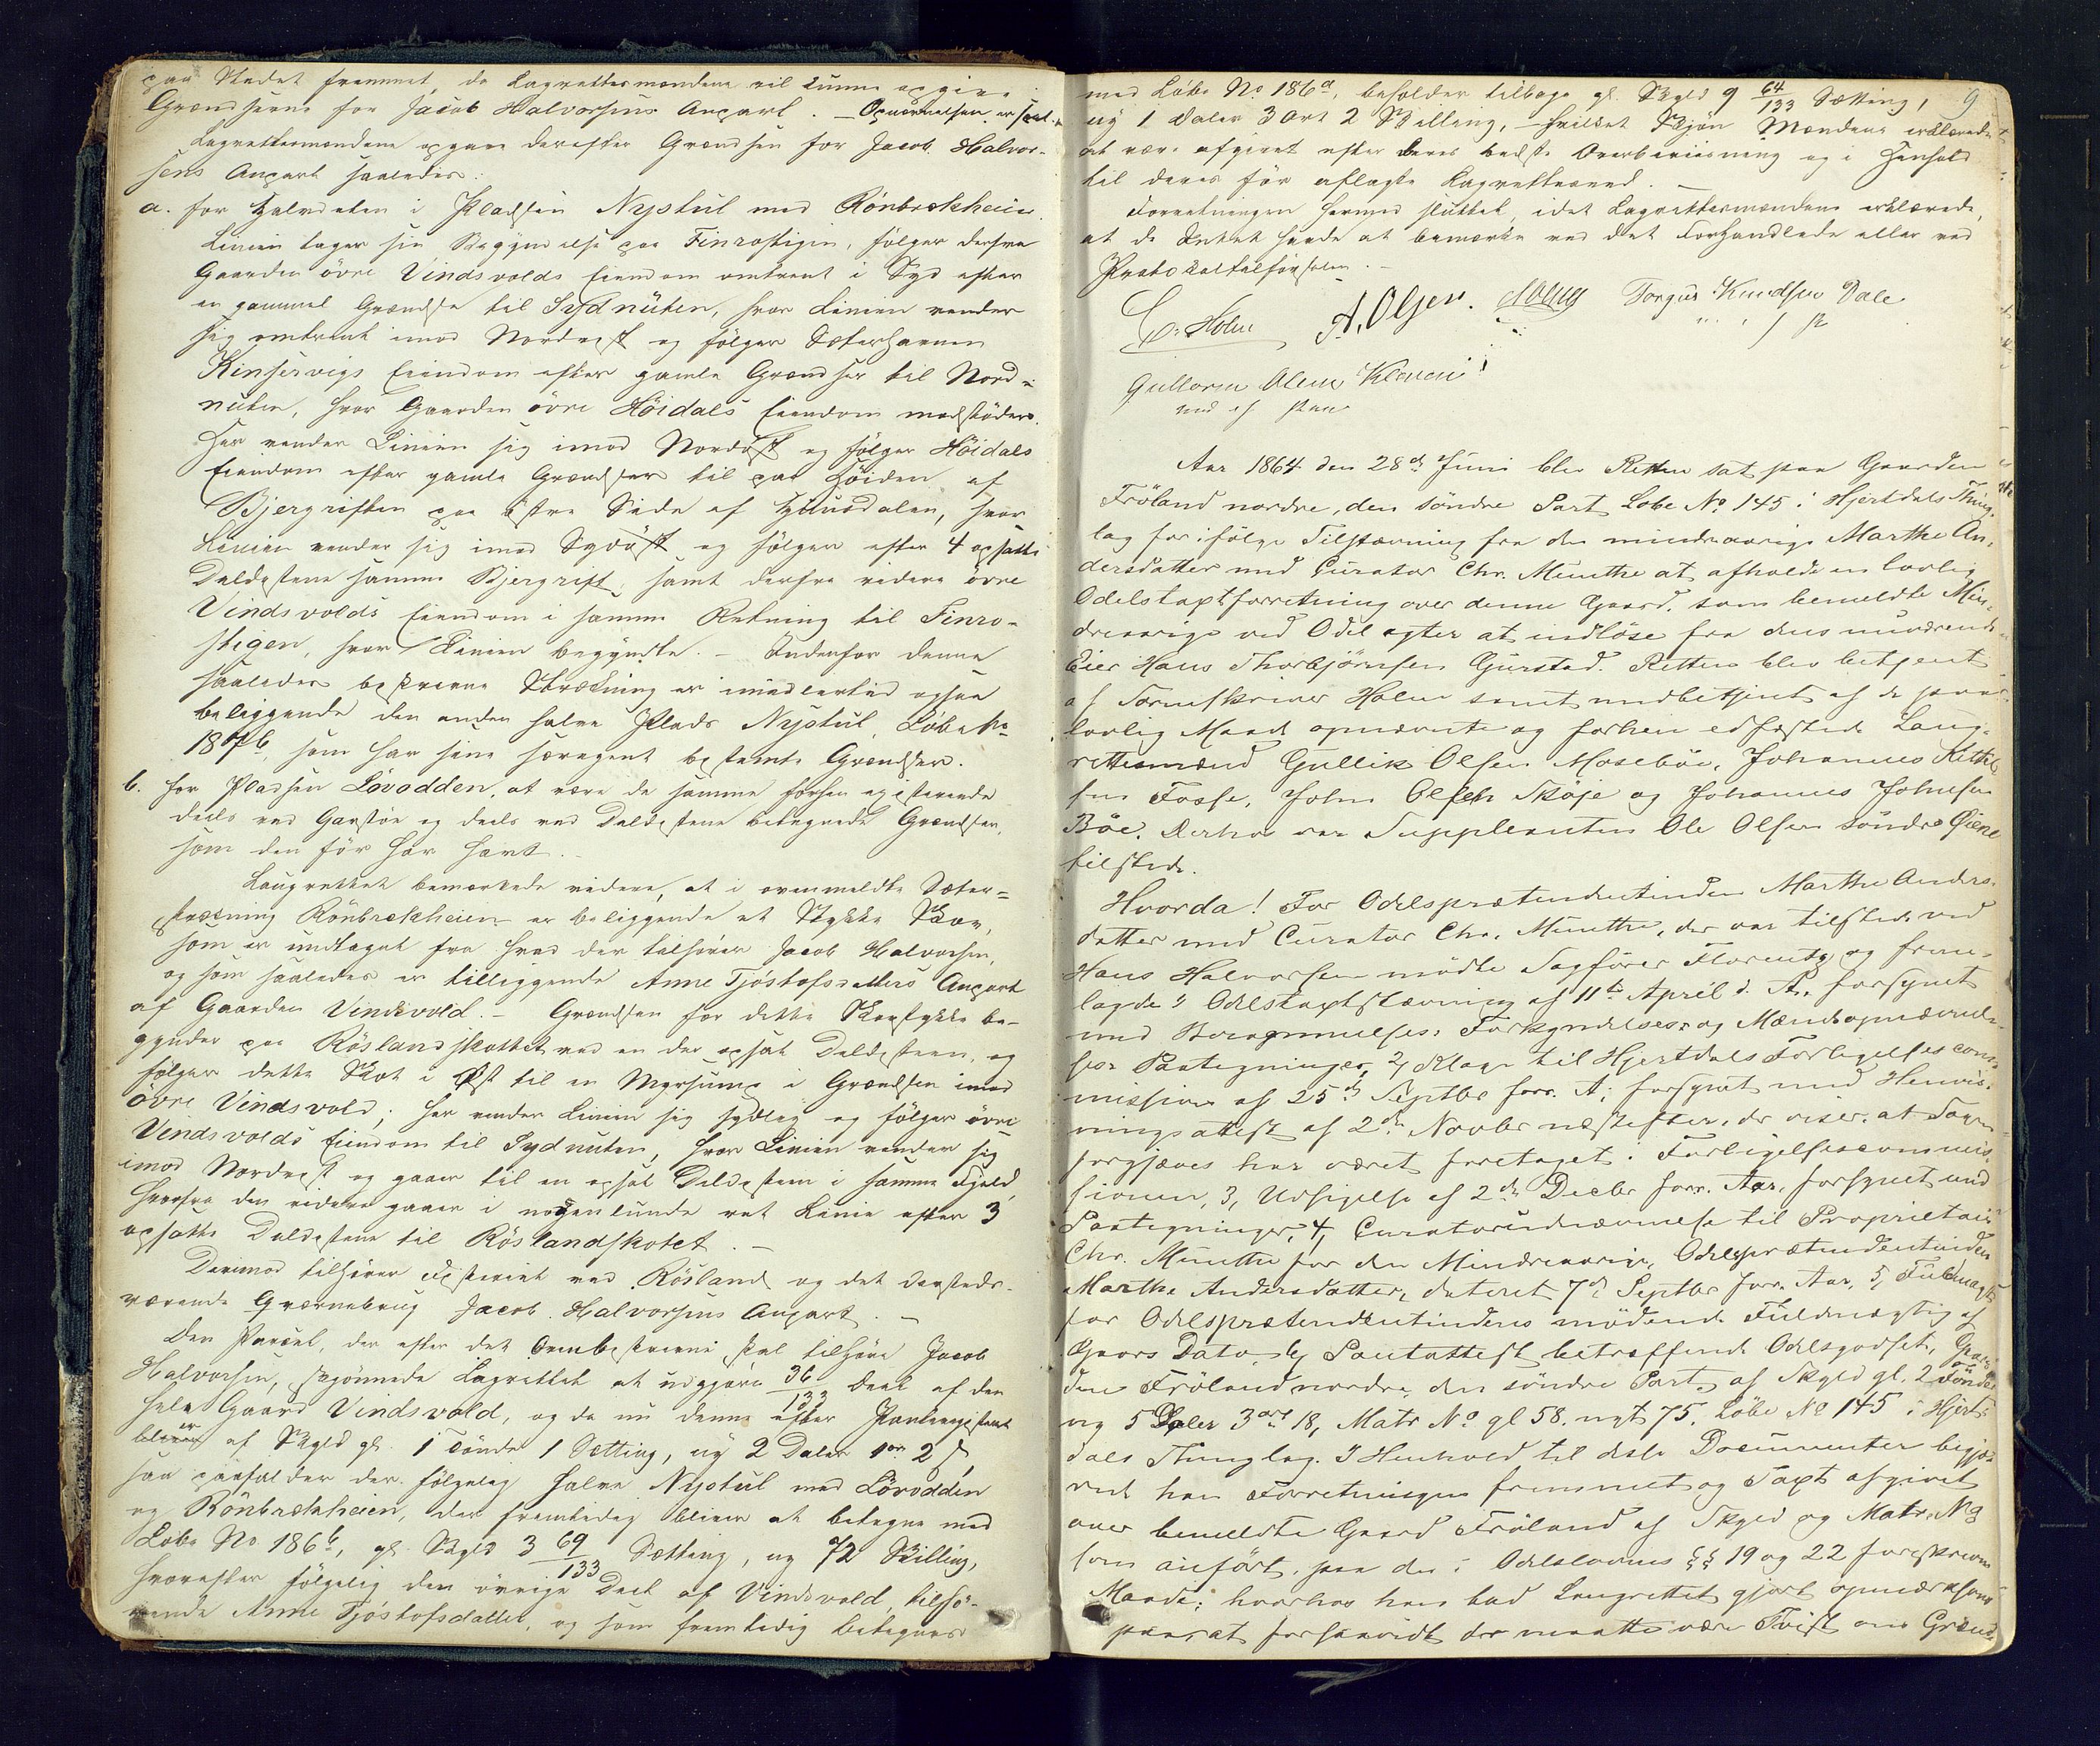 paa Stedet fremmet, da Lagrettesmændene vil kunne opgive
Grændserne for Jacob Halvorsens Anpart. —
Lagrettesmændene opgav derefter Grændsen for Jacob Halvor-
sens Anpart saaledes:
a. for Halvdelen i Pladsen Nystul med Rönbrekheien.
Linien tager sin Begyndelse paa Finrostigen, følger derfra
Gaarden övre Vindsvolds Eiendom omtrent i Syd efter
en gammel Grændse til Sydnuten, hvor Linien vender
sig omtrent imod Nordvest og følger Sæterhavnen
Kinservigs Eiendom efter gamle Grændser til Nord-
nuten, hvor Gaarden övre Höidals Eiendom modstöder.
Her vender Linien sig imod Nordöst og følger Höidals
Eiendom efter gamle Grændser til paa Höiden af
Bjergriften paa östre Side af Hjuusdalen, hvor
Linien vender sig imod Sydöst og følger efter 4 opsatte
Deldestene samme Bjergrift, samt derfra videre övre
Vindsvolds Eiendom i samme Retning til Finro-
stigen, hvor Linien begyndte. — Indenfor denne
saaledes beskrevne Strækning er imidlertid ogsaa
beliggende den anden halve Plads Nystul, Løbe No
187b, som har sine særegent bestemte Grændser.
b. For Pladsen Lövodden, at være de samme forhen existerende
deels ved Gardstöe og deels ved Deldestene betegnede Grændser,
som den för har havt.
Laugrettet bemærkede videre, at i ovenmeldte Sæter-
strækning Rönbrekheien er beliggende et Stykke Skov,
som er undtaget fra hvad der tilhører Jacob Halvorsen,
og som saaledes er tilliggende Anne Tjöstofsdatters Anpart
af Gaarden Vindsvold. — Grændsen for dette Skovstykke be-
gynder paa Röslandskottet ved en der opsat Deldesteen, og
følger dette Skot i Øst til en Myrsump i Grændsen imod
övre Vindsvold; her vender Linien sig sydlig og følger övre
Vindsvolds Eiendom til Sydnuten, hvor Linien vender sig
imod Nordvest og gaaer til en opsat Deldesteen i samme Fjeld,
hvorfra den videre gaaer i nogenlunde ret Linie efter 3
opsatte Deldestene til Röslandskotet. —
Derimod tilhører Fiskeriet ved Rösland og det dersteds-
værende Qværnebrug Jacob Halvorsens Anpart. —
Den Parcel, der efter det Ovenbeskrevne skal tilhøre Jacob
Halvorsen, skjönnede Lagrettet at udgjøre 36/133 Deel af den
hele Gaard Vindsvold, og da nu denne efter Panteregisteret
er af Skyld gl. 1 Tönde 1 Sætting, ny 2 Daler 1 ort 2 s,
saa paafalder der følgelig halve Nystul med Lövodden
og Rönbrækheien, der fremtidig bliver at betegne med
Løbe No 186b, gl. Skyld 3 69/133 Sætting, ny 72 Skilling,
hvorefter følgelig den övrige Deel af Vindsvold, tilhö-
rende Anne Tjöstofsdatter, og som fremtidig betegnes
9
med Löbe No 186a, beholder tilbage gl. Skyld 9 64/133 Sætting,
ny 1 Daler 3 Ort 2 Skilling, — hvilket Skjön Mændene erklærede
at være afgivet efter deres bedste Overbeviisning og i Henhold
til deres för aflagte Lagretteseed. —
Forretningen hermed sluttet, idet Lagrettesmændene erklærede,
at de Intet havde at bemærke ved det Forhandlede eller ved
Protokoltilförselen. —
C. Holm A. Olsen. Torgus Knudsen Dale
Gullovsen Olsen
med ef Pen
Aar 1864 den 28de Juni blev Retten sat paa Gaarden
Fröland nordre, den söndre Part, Lobe No 145 i Hjertdals Thing-
lag for ifölge Tilstævning fra den mindreaarige Marthe An-
dersdatter med Curator Chr. Münthe at afholde en lovlig
Odelstaxtforretning over denne Gaard, som bemeldte Min-
dreaarige ved Odel agter at indlöse fra dens nuværende
Eier Hans Thorbjörnsen Gurstad. Retten blev betjent
af Sorenskriver Holm samt medbetjent af de paa
lovlig Maade opnævnte og forhen edfæstede Laug-
rettesmænd Gullik Olsen Mosebö, Johannes Kittil-
sen Fosse, John Olsen Sköje og Johannes Johnsen
Böe. Derhos var Suppleanten Ole Olsen söndre Øiene
tilstede.
Hvorda! For Odelsprætendentinden Marthe Anders-
datter med Curator Chr. Münthe, der var tilstede ved
Hans Halvorsen mödte Sagförer Florentz og frem-
lagde 1, Odelstaxtstævning af 11te April d. A. forsynet
med Berammelses- Forkyndelses- og Mændsopnævnel-
ses Paategninger, 2, Klage til Hjertdals Forligelsescom-
mission af 25de Septbr forr. A. forsynet med Henvis-
ningsattest af 2den Novbr næstefter, der viser, at Sagen
forgjæves har været foretaget i Forligelsescommis-
sionen, 3, Udsigelse af 2den Decbr forr. Aar, forsynet med
Paategninger, 4, Curatorudnævnelse til Proprietair
Chr. Münthe for den Mindreaarige, Odelsprætendentinden
Marthe Andersdatter, dateret 7de Septbr forr. Aar, 5, Fuldmagt
for Odelsprætendentindens mödende Fuldmægtig af
Gaars Dato, 6, Pantattest betræffende Odelsgodset, Gaar-
den Fröland nordre, den söndre Part, af Skyld gl. 2 Tönder
ny 5 Daler 3 ort 18, Matr No gl 58. nyt 75. Löbe No 145 i Hjert-
dals Thinglag. I Henhold til disse Documenter begjæ-
rede han Forretningen fremmet og Taxt afgivet
over bemeldte Gaard Fröland af Skyld og Matr. No
som anfört, paa den i Odelslovens §§ 19 og 22 foreskrevne
Maade; hvorhos han bad Laugrettet gjort opmærksom
paa, at forsaavidt der maatte være Tvist om Grænd-